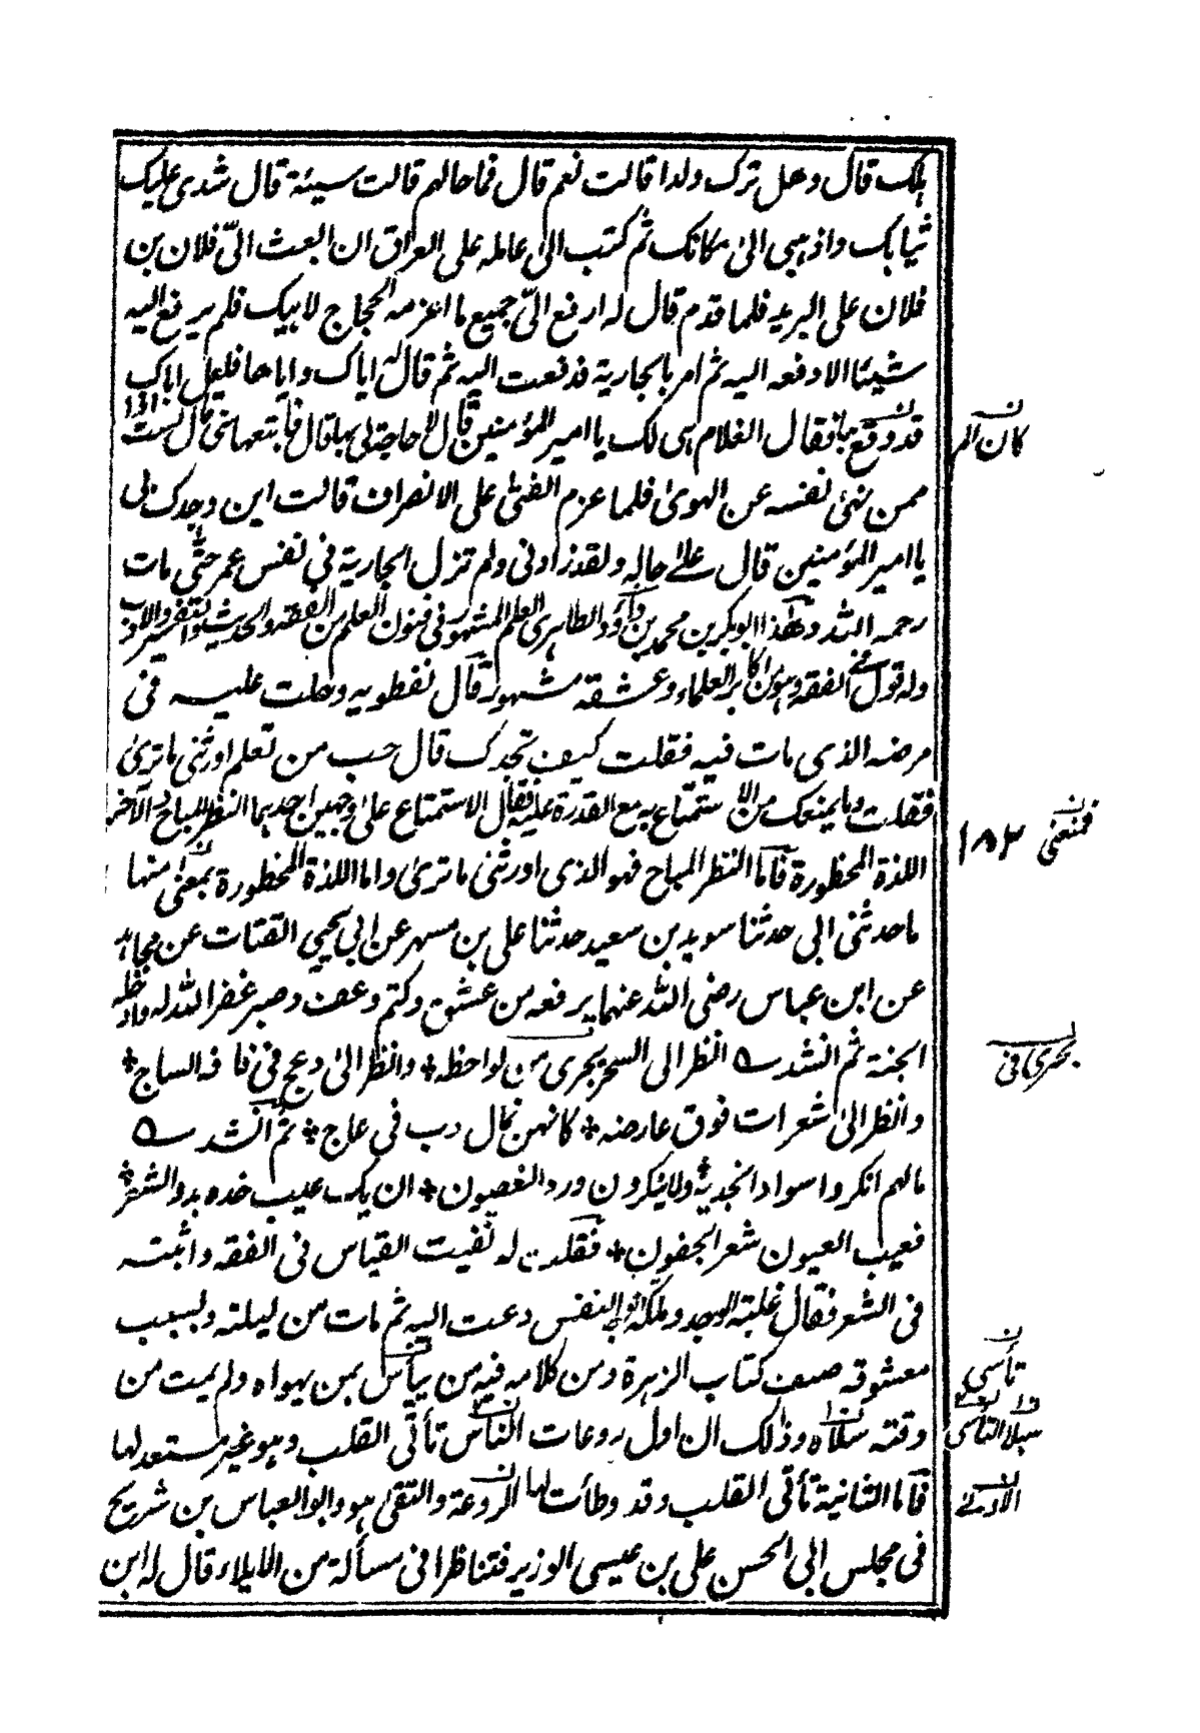 هلك قال وهل ترك ولدا قالت نعم قال فما حالهم قالت سيئة قال شدي عليك
ثيابك واذهبي الى مكانك ثم كتب الى عامله على العراق ان ابعث الىّ فلان بن
فلان على البريد فلما قدم قال له ارفع الىّ جميع ما اغرمه الحجاج لابيك فلم يرفع اليه
شيئا الا دفعه اليه ثم امر بالجارية فدفعت اليه ثم قال له اياك واياها فلعل اباك
قد وقع بها فقال الغلام هي لك يا امير المؤمنين قال لا حاجة لي بها قال فابتعها مني قال لست اذا
كان الم
ممن نهى نفسه عن الهوى فلما عزم الفتى على الانصراف قالت اين وجدك بي
يا امير المؤمنين قال على حاله ولقد زادني ولم تزل الجارية في نفس عمر حتى مات
رحمه الله وهذا ابو بكر بن محمد بن داؤد الظاهري العلم المشهور في فنون العلم من الفقه والحديث والتفسير والادب
وله قول في الفقه وهو من اكابر العلماء وعشقه مشهور قال نفطويه دخلت عليه في
مرضه الذي مات فيه فقلت كيف تجدك قال حب من تعلم اورثني ما ترى
فقلت وما يمنعك من الاستمتاع به مع القدرة عليه فقال الاستمتاع على وجهين احدهما النظر المباح الآخر
فمنعني ١٨٢
اللذة المحظورة فاما النظر المباح فهو الذي اورثني ما ترى واما اللذة المحظورة يمنعني منها
ما حدثني ابي حدثنا سويد بن سعيد حدثنا علي بن مسهر عن ابي يحيى القتات عن مجاهد
عن ابن عباس رضي الله عنهما يرفعه من عشق وكتم وعف وصبر غفر الله له وادخله
الجنة ثم انشد انظر الى السحر يجري من لواحظه * وانظر الى دعج في طرفه الساج *
يجري في
وانظر الى شعرات فوق عارضه * كانهن نمال دب في عاج * ثم انشد
ما لهم انكروا سوادا بخديه * ولا ينكرون ورد الغصون * ان يك عيب خده بدو الشعر *
فعيب العيون شعر الجفون * فقلت له نفيت القياس في الفقه واثبته
في الشعر فقال غلبة الوجد وملكة النفس دعت اليه ثم مات من ليلته وبسبب
معشوقه صنف كتاب الزهرة ومن كلامه فيه من يأس بمن يهواه ولم يمت من
تأسى
وقته سلاه وذلك ان اول روعات الناس تأتي القلب وهو غير مستعد لها
فاما الثانية تأتي القلب وقد وطأت لها الروعة والتقى هو وابو العباس بن شريح
الاولى
في مجلس ابي الحسن علي بن عيسى الوزير فتناظرا في مسألة من الايلاء قال له ابن